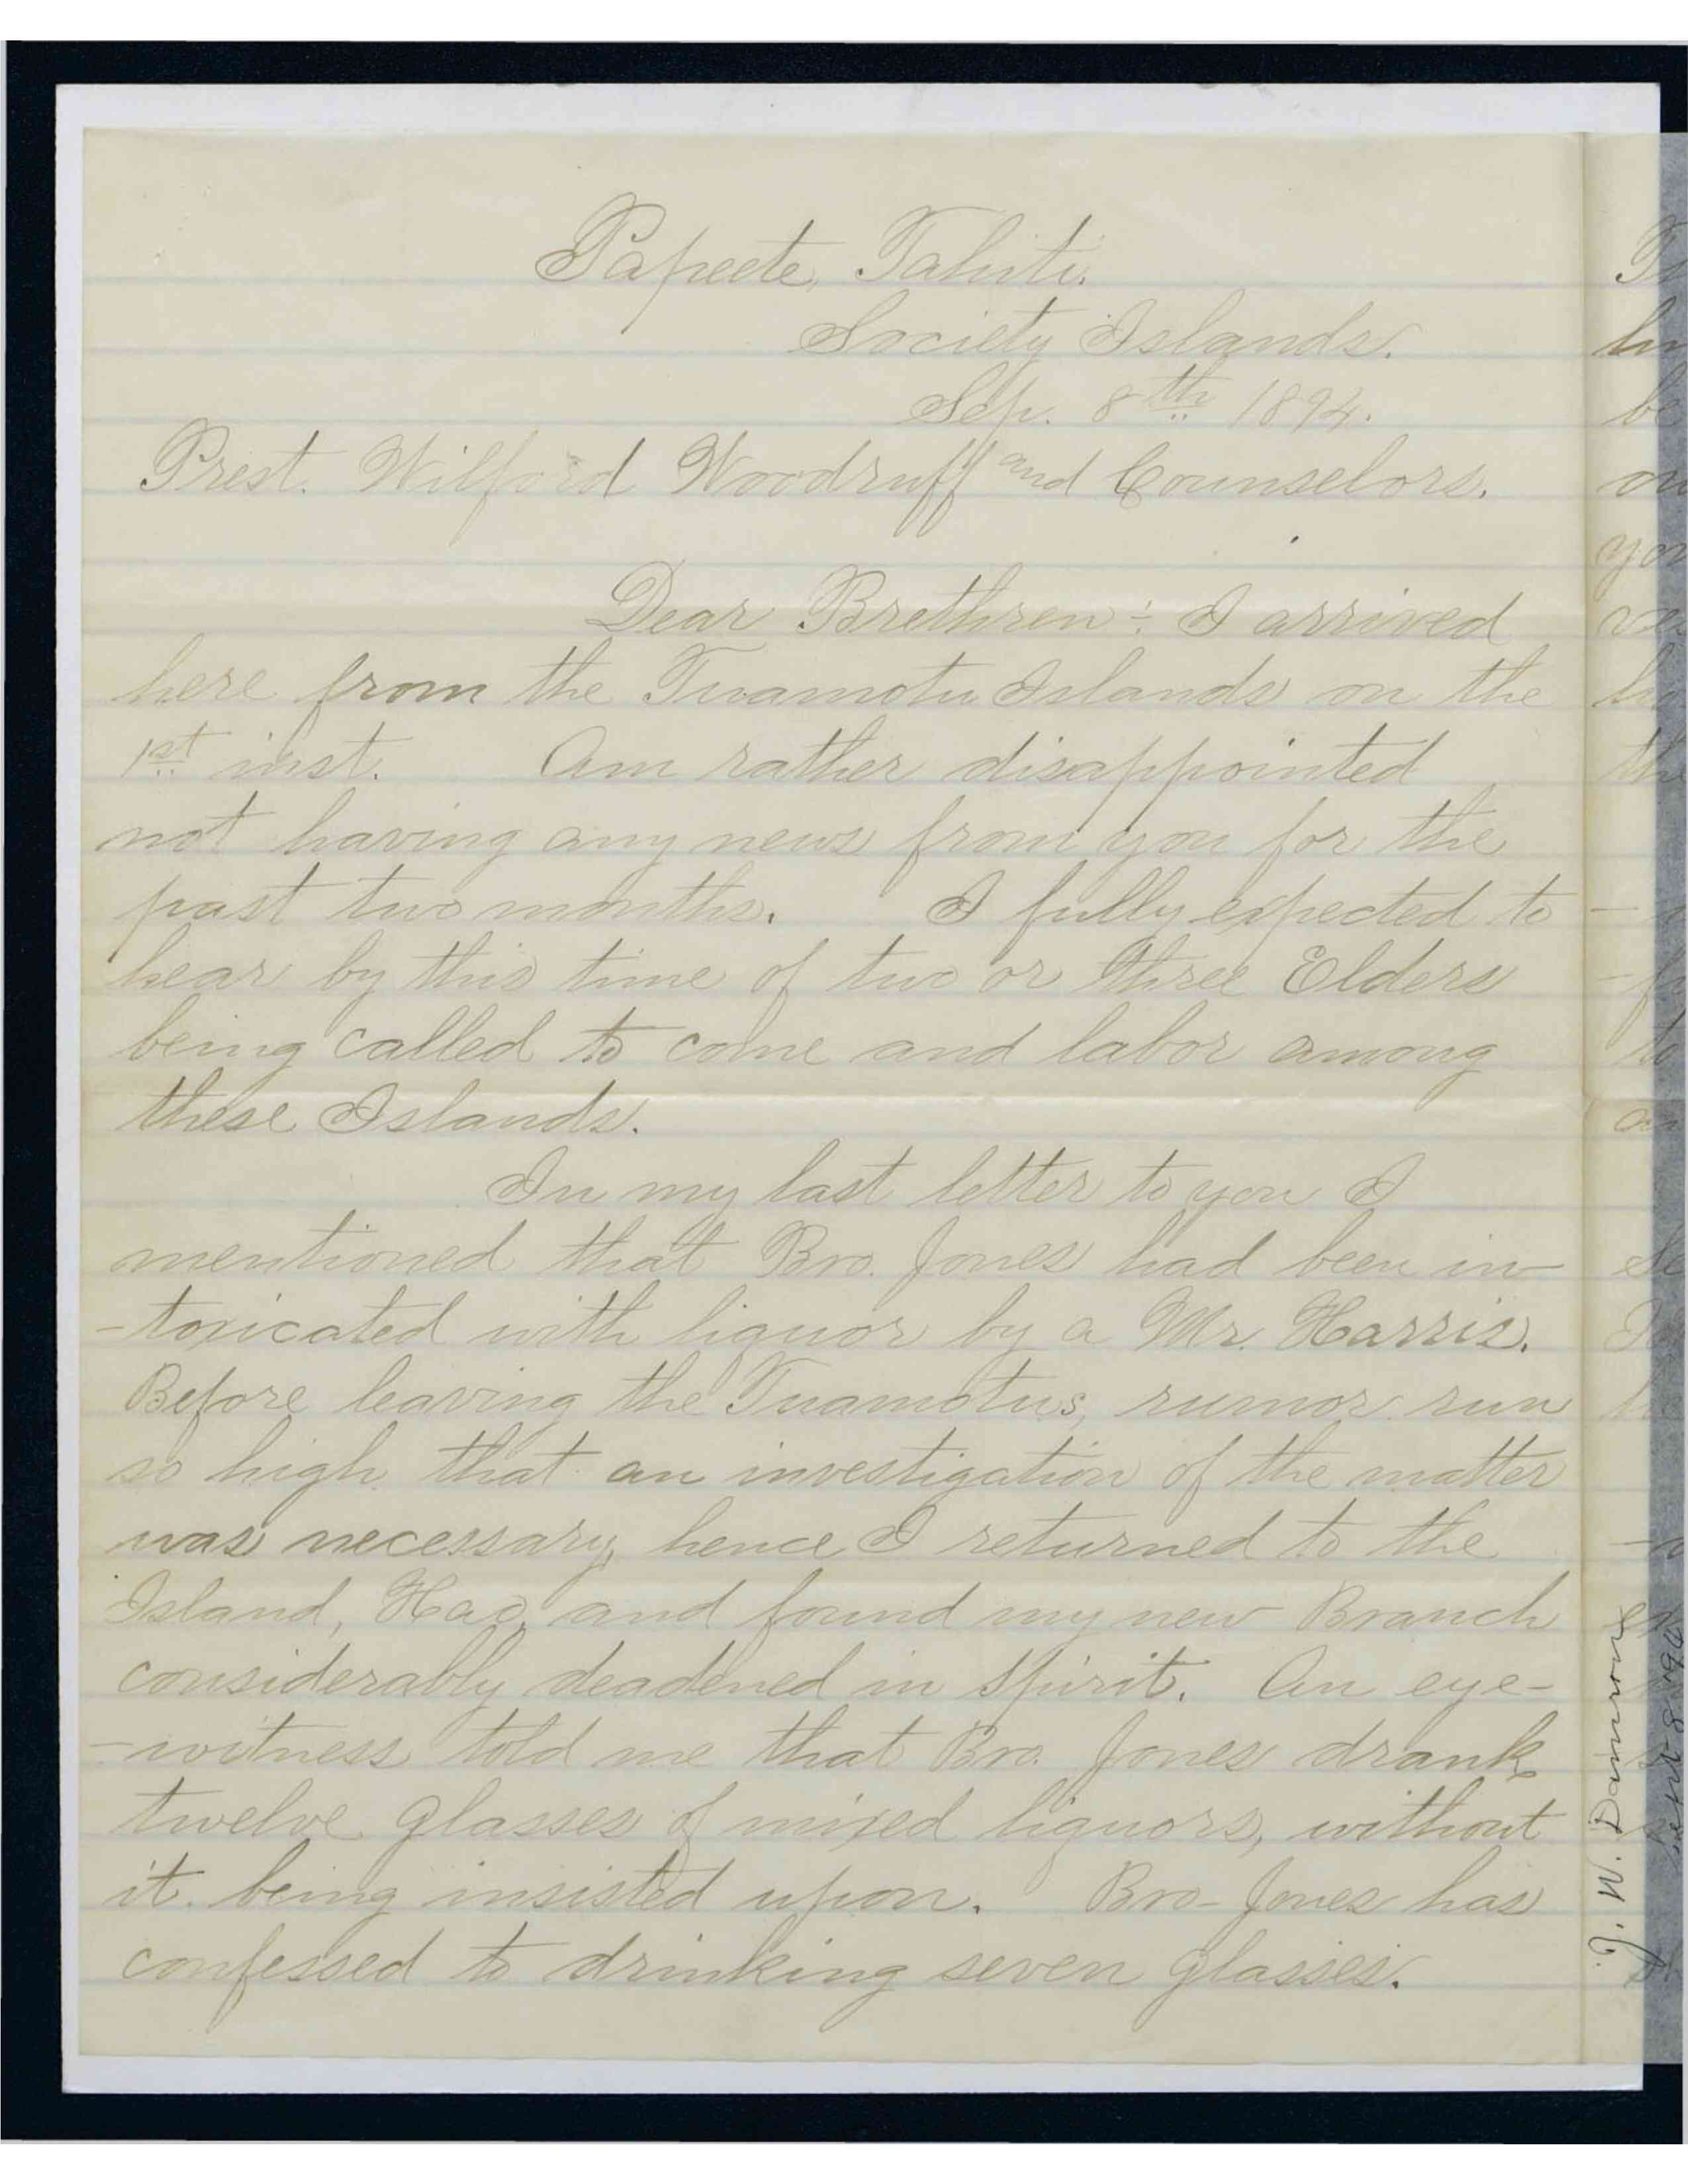 Papeete, Tahiti.
Society Islands.
Sep. 8th 1894.
Prest. Wilford Woodruff and Counselors.
Dear Brethren:- I arrived
here from the Tuamotu Islands on the
1st inst. Am rather disappointed
not having any news from you for the
past two months. I fully expected to
hear by this time of two or three Elders
being called to come and labor among
these Islands.
In my last letter to you I
mentioned that Bro. Jones had been in-
-toxicated with liquor by a Mr. Harris.
Before leaving the Tuamotus, rumor run
so high that an investigation of the matter
was necessary, hence I returned to the
Island, Hao, and found my new Branch
considerably deadened in spirit. An eye-
-witness told me that Bro. Jones drank
twelve glasses of mixed liquors, without
it being insisted upon. Bro. Jones has
confessed to drinking seven glasses.
J. W. Damron